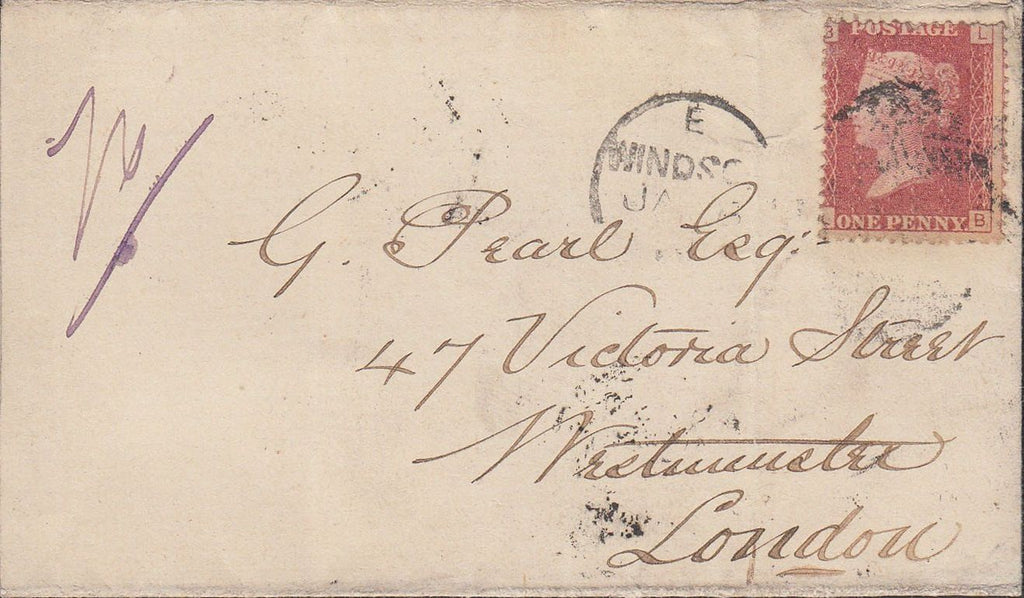 B POSTAGE L
E
WINDSO
JA
ONE PENNY.
L B
G. Pearl Esq.
47 Victoria Street
Westminster
London